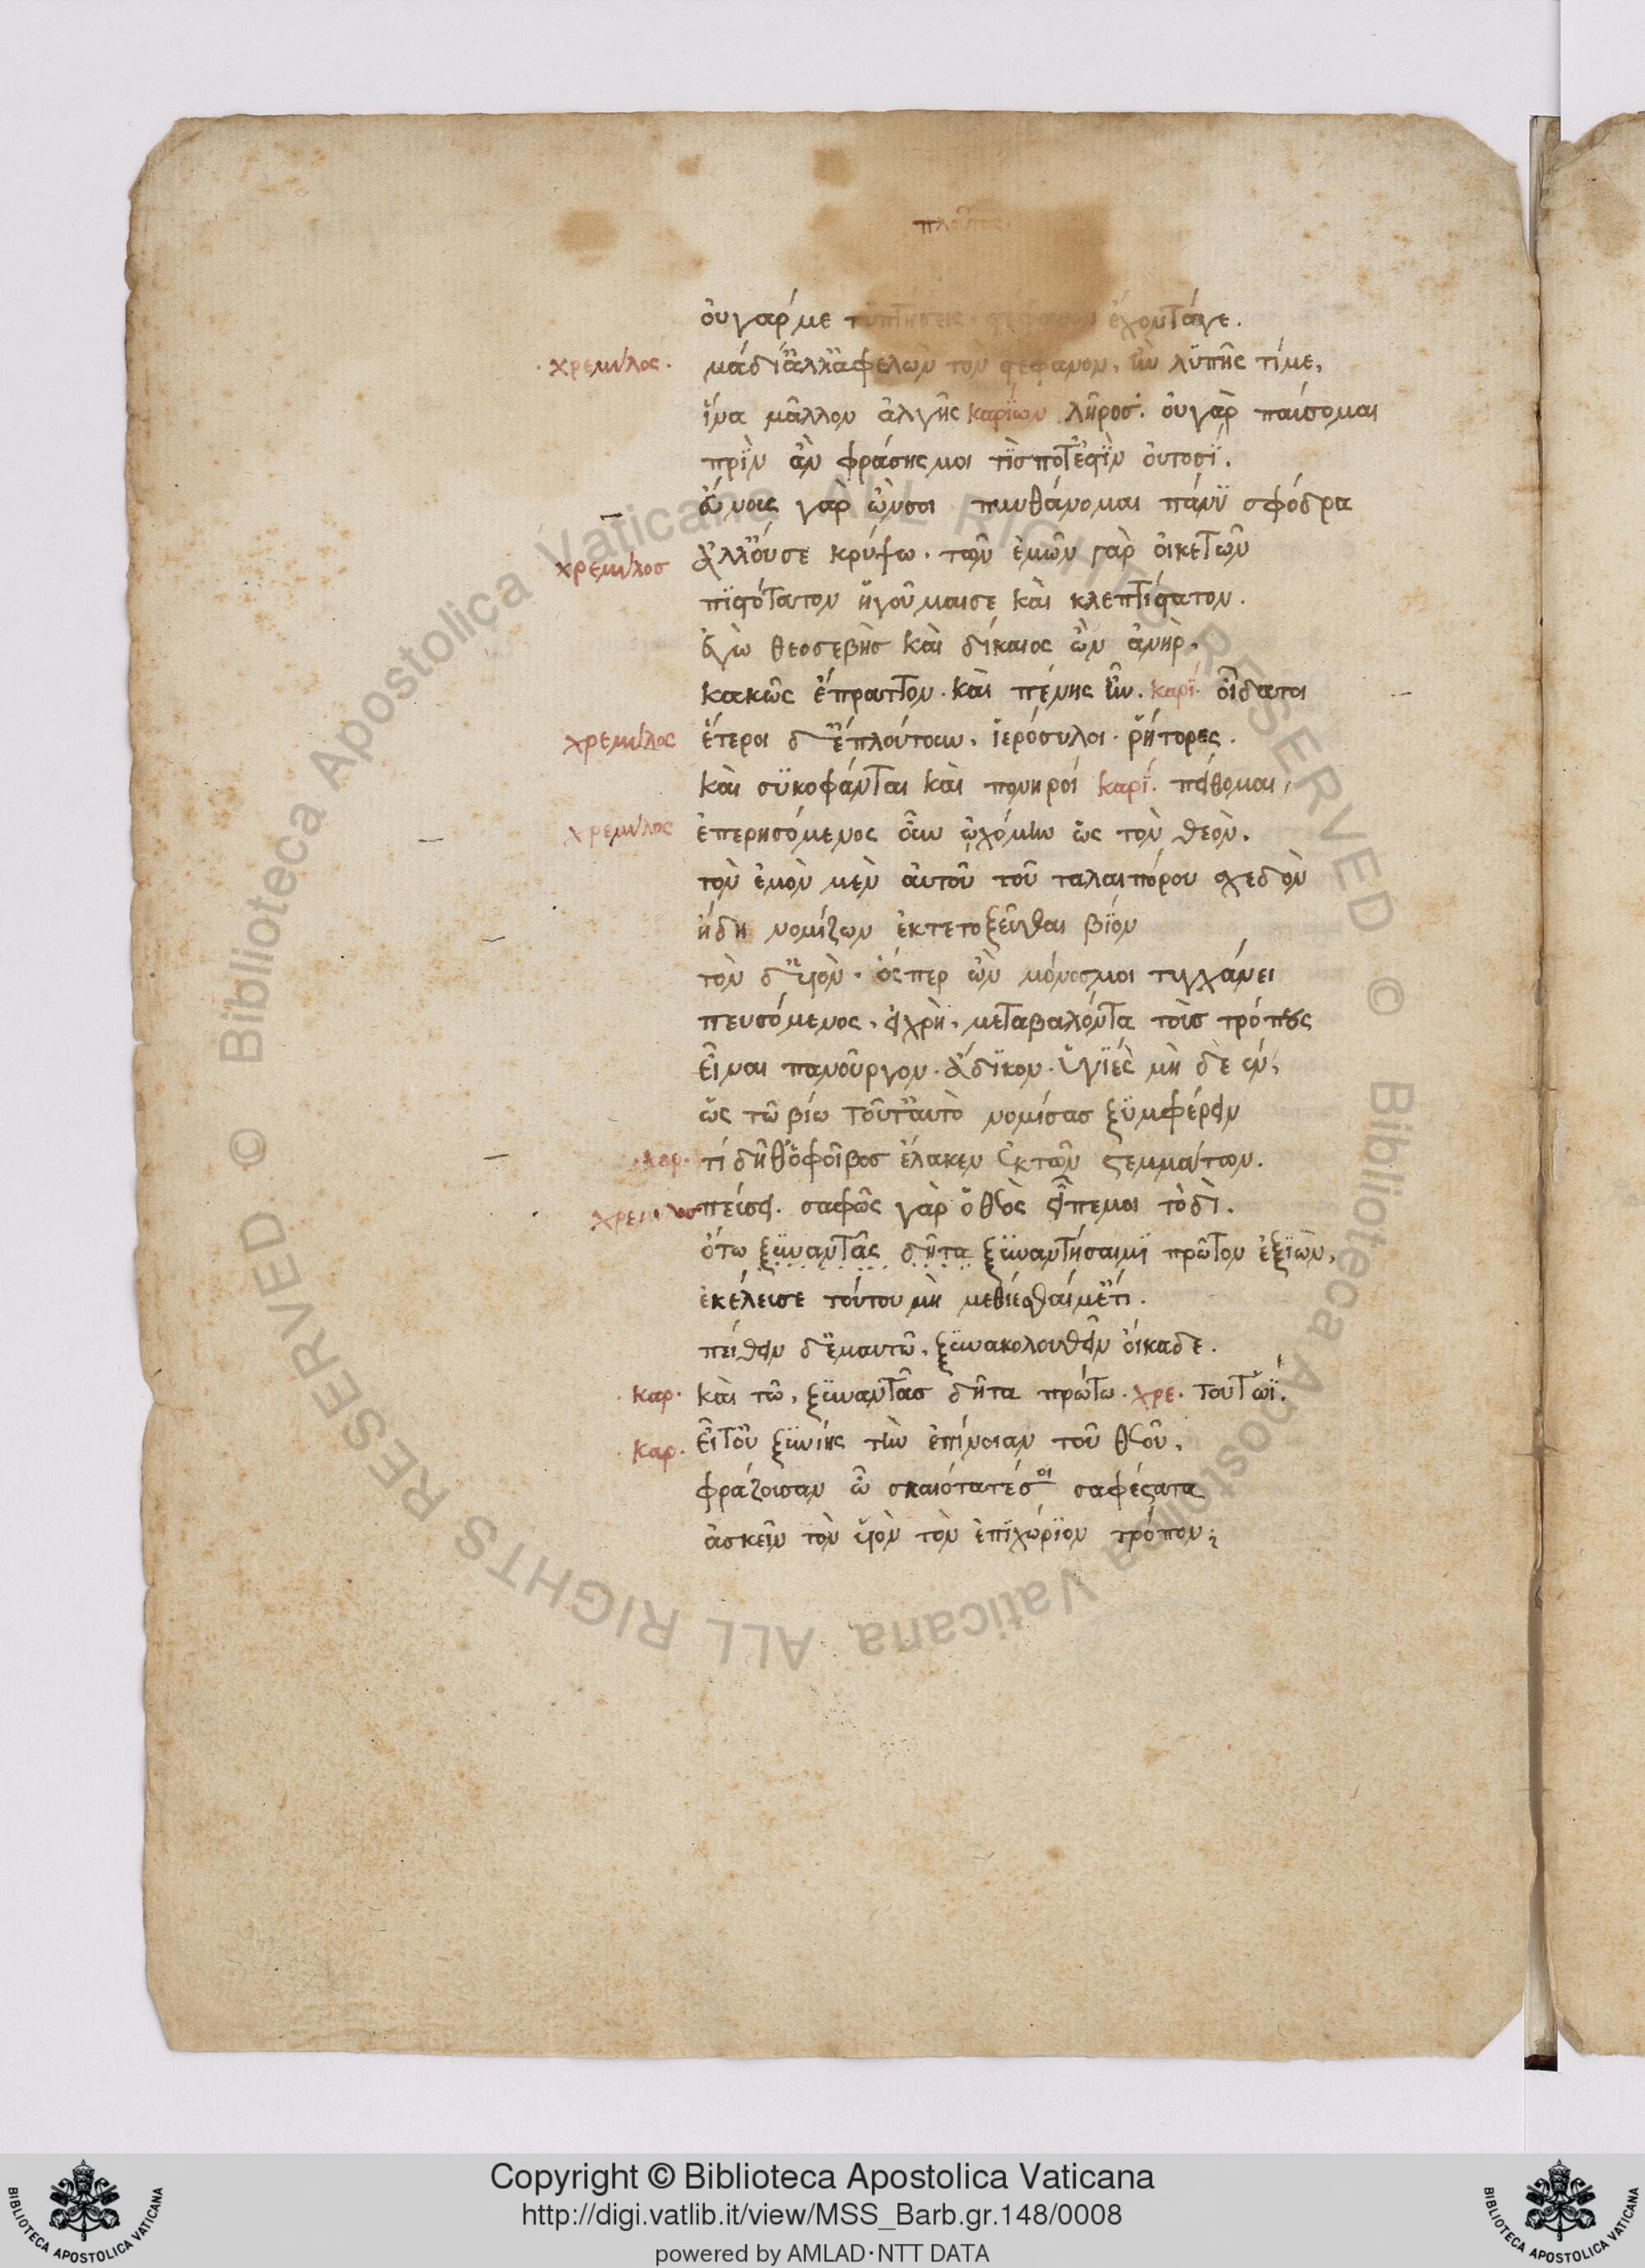 πλοῦτος
ὀυγαρ με τυπτήσεις στέφανον ἔχοντάγε.
χρεμύλος. μὰ δί ἀλλ ἀφελὼν τὸν στέφανον, ἢν λϋπῆς τί με,
ἵνα μᾶλλον ἀλγῆς καρίων λῆροσ. ὀυγὰρ παύσομαι
πρὶν ἂν φράσης μοι τὶσ ποτ ἐστὶν ὁυτοσί.
ἔυνους γὰρ ὤν σοι πυνθάνομαι πάνϋ σφόδρα
χρεμύλοσ ἀλλ ὄυσε κρύψω. τῶν ἐμῶν γὰρ ὀικετῶν
πϊστότατον ἡγοῦμαισε καὶ κλεπτίστατον.
ἐγὼ θεοσεβὴσ καὶ δίκαιος ὢν ἀνὴρ.
κακῶς ἔπραττον. καὶ πένης ἦν. καρϊ. οἶδατοι
χρεμύλος ἕτεροι δ ἐπλούτουν, ἱερόσυλοι. ῥήτορες.
καὶ σϋκοφάνται καὶ πονηροί καρϊ. πείθομαι,
χρεμύλος ἐπερησόμενος οὖν ὠχόμην ὡς τὸν θεὸν.
τὸν ἐμὸν μὲν ἀυτοῦ τοῦ ταλαιπόρου σχεδὸν
ἤδη νομίζων ἐκτετοξεῦσθαι βϊόν
τὸν δ ὑιὸν. ὅσπερ ὢν μόνοσμοι τυγχάνει
πευσόμενος, εἰ χρὴ, μεταβαλόντα τοὺσ τρόπους
εἶναι πανοῦργον. ἄδϊκον. ὑγϊὲς μὴ δὲ ἕν,
ὡς τῶ βίω τοῦτ αυτὸ νομίσασ ξϋμφέρειν
καρ. τί δῆθ ὁ φοῖβοσ ἔλακεν ἐκ τῶν στεμμάτων.
χρεμύλοσ πεύσει. σαφῶς γὰρ ὁ θεὸς εἶπεμοι τὸδὶ.
ὅτω ξϋναντᾶς δῆτα ξϋναντήσαιμϊ πρῶτον ἐξϊὼν,
ἐκέλευσε τούτου μὴ μεθίεσθαί μ ἔτι.
πείθειν δ ἐμαυτῶ, ξϋνακολουθεῖν ὀίκαδε.
καρ. καὶ τῶ, ξϋναντᾶσ δῆτα πρώτω. χρε. τουτωΐ.
καρ. εἶτ ὀυ ξϋνίης τὴν ἐπίνοιαν τοῦ θεοῦ,
φράζουσαν ὦ σκαιότατέ σοι σαφέστατα
ἀσκεῖν τὸν ὑιὸν τὸν ἐπϊχώρϊον τρόπον;
Copyright © Biblioteca Apostolica Vaticana
http://digi.vatlib.it/view/MSS_Barb.gr.148/0008
powered by AMLAD·NTT DATA
BIBLIOTECA APOSTOLICA VATICANA
BIBLIOTECA APOSTOLICA VATICANA
© Biblioteca Apostolica Vaticana ALL RIGHTS RESERVED © Biblioteca Apostolica Vaticana ALL RIGHTS RESERVED